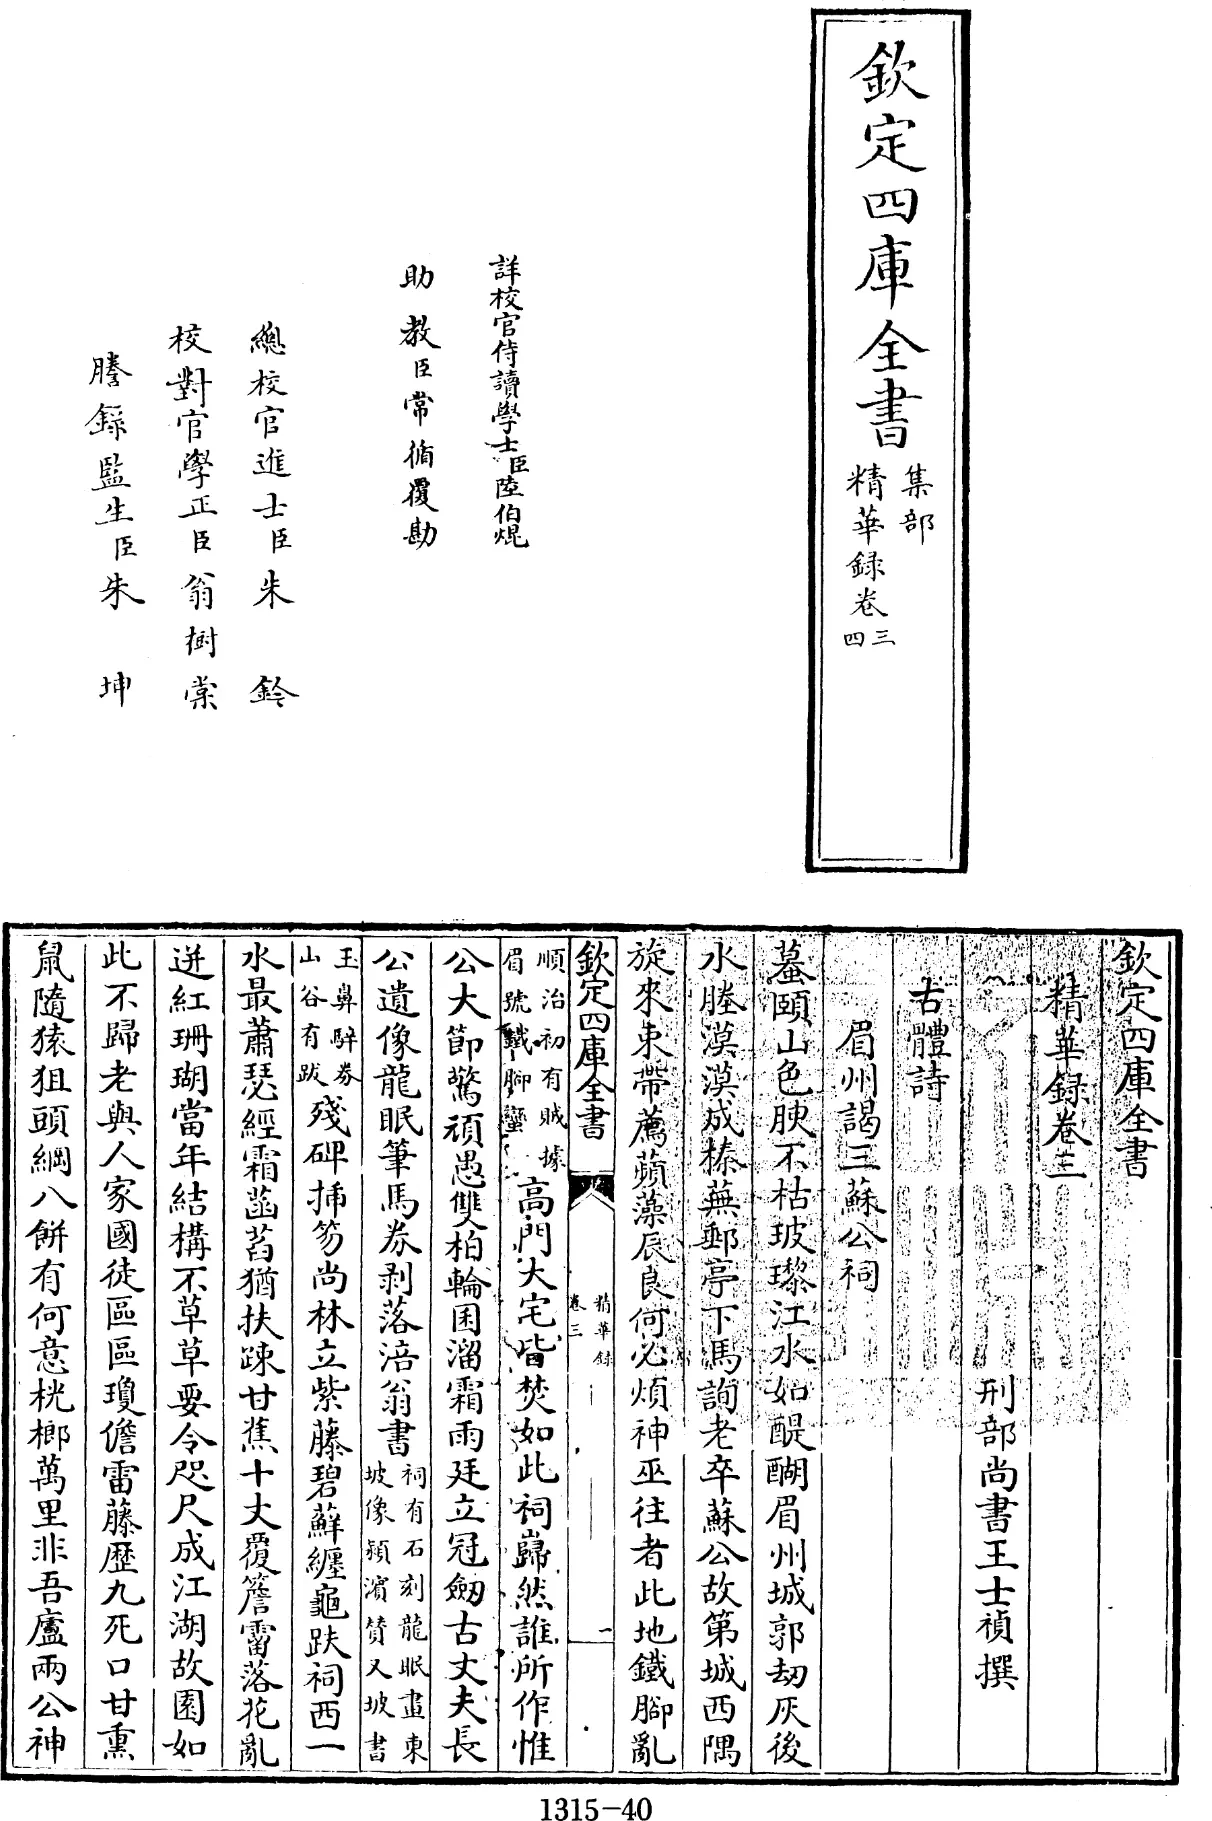 欽定四庫全書
集部
精華録卷三四
詳校官侍讀學士臣陸伯焜
助教臣常循覆勘
總校官進士臣朱鈐
校對官學正臣翁樹棠
謄錄監生臣朱坤
欽定四庫全書
精華録卷三
刑部尚書王士禎撰
古體詩
眉州謁三蘇公祠
蟇頤山色腴不枯玻瓈江水如醍醐眉州城郭劫灰後
水塍漠漠成榛蕪郵亭下馬詢老卒蘇公故第城西隅
旋來束帶薦蘋藻辰良何必煩神巫往者此地鐵腳亂
順治初有賊據眉號鐵腳蠻高門大宅皆焚如此祠巋然誰所作惟
欽定四庫全書
精華録
卷三
一
公大節驚頑愚雙柏輪囷溜霜雨廷立冠劒古丈夫長
公遺像龍眠筆馬券剥落涪翁書祠有石刻龍眠畫東坡像潁濱贊又坡書
玉鼻騂券山谷有跋殘碑揷笏尚林立紫藤碧蘚纏龜趺祠西一
水最蕭瑟經霜菡萏猶扶踈甘蕉十丈覆簷霤落花亂
迸紅珊瑚當年結構不草草要令咫尺成江湖故園如
此不歸老與人家國徒區區瓊儋雷藤歴九死口甘熏
鼠隨猿狙頭綱八餅有何意桄榔萬里非吾廬兩公神
1315-40